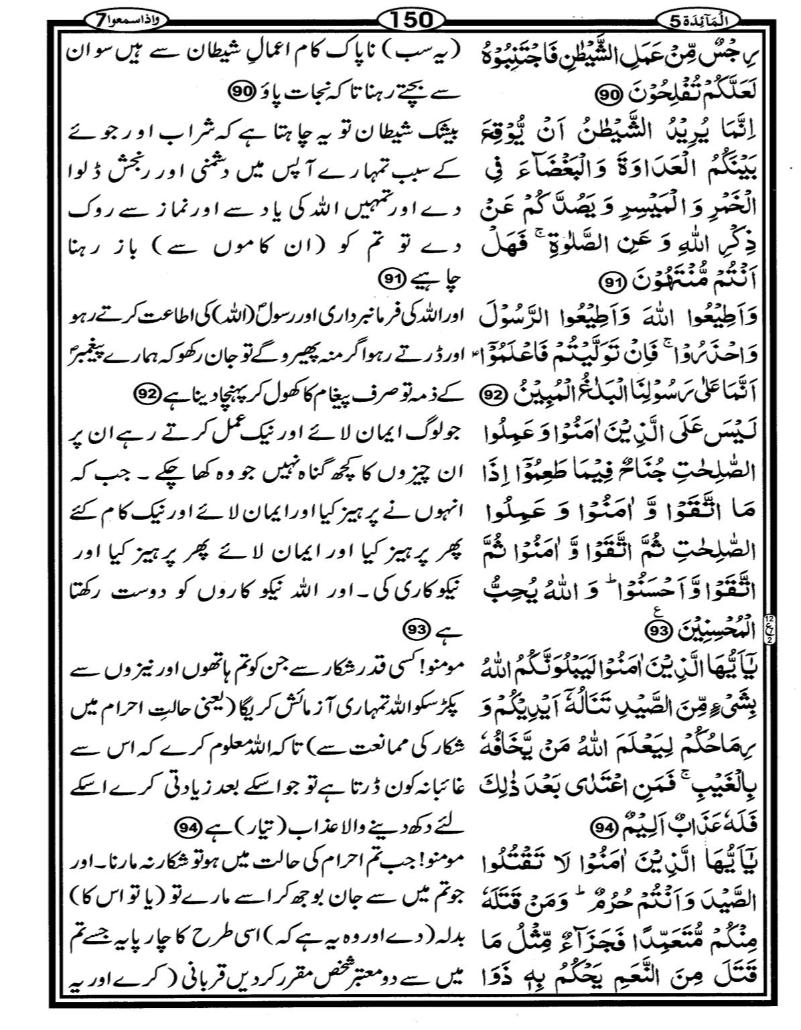 اَلْمَآئِدَة 5
150
وَاِذَاسمعوا 7
رِجْسٌ مِّنْ عَمَلِ الشَّيْطٰنِ فَاجْتَنِبُوْهُ
لَعَلَّكُمْ تُفْلِحُوْنَ 90
اِنَّمَا يُرِيْدُ الشَّيْطٰنُ اَنْ يُّوْقِعَ
بَيْنَكُمُ الْعَدَاوَةَ وَالْبَغْضَآءَ فِى
الْخَمْرِ وَالْمَيْسِرِ وَيَصُدَّكُمْ عَنْ
ذِكْرِ اللّٰهِ وَعَنِ الصَّلٰوةِ ۚ فَهَلْ
اَنْتُمْ مُّنْتَهُوْنَ 91
وَاَطِيْعُوا اللّٰهَ وَاَطِيْعُوا الرَّسُوْلَ
وَاحْذَرُوْا ۚ فَاِنْ تَوَلَّيْتُمْ فَاعْلَمُوْۤا
اَنَّمَا عَلٰى رَسُوْلِنَا الْبَلٰغُ الْمُبِيْنُ 92
لَيْسَ عَلَى الَّذِيْنَ اٰمَنُوْا وَعَمِلُوا
الصّٰلِحٰتِ جُنَاحٌ فِيْمَا طَعِمُوْۤا اِذَا
مَا اتَّقَوْا وَّ اٰمَنُوْا وَ عَمِلُوا
الصّٰلِحٰتِ ثُمَّ اتَّقَوْا وَّ اٰمَنُوْا ثُمَّ
اتَّقَوْا وَّ اَحْسَنُوْا ؕ وَ اللّٰهُ يُحِبُّ
الْمُحْسِنِيْنَ 93 ع
يٰۤاَيُّهَا الَّذِيْنَ اٰمَنُوْا لَيَبْلُوَنَّكُمُ اللّٰهُ
بِشَيْءٍ مِّنَ الصَّيْدِ تَنَالُهٗۤ اَيْدِيْكُمْ وَ
رِمَاحُكُمْ لِيَعْلَمَ اللّٰهُ مَنْ يَّخَافُهٗ
بِالْغَيْبِ ۚ فَمَنِ اعْتَدٰى بَعْدَ ذٰلِكَ
فَلَهٗ عَذَابٌ اَلِيْمٌ 94
يٰۤاَيُّهَا الَّذِيْنَ اٰمَنُوْا لَا تَقْتُلُوا
الصَّيْدَ وَاَنْتُمْ حُرُمٌ ؕ وَمَنْ قَتَلَهٗ
مِنْكُمْ مُّتَعَمِّدًا فَجَزَآءٌ مِّثْلُ مَا
قَتَلَ مِنَ النَّعَمِ يَحْكُمُ بِهٖ ذَوَا
(یہ سب) ناپاک کام اعمالِ شیطان سے ہیں سو ان
سے بچتے رہنا تاکہ نجات پاؤ 90
بیشک شیطان تو یہ چاہتا ہے کہ شراب اور جوئے
کے سبب تمہارے آپس میں دشمنی اور رنجش ڈلوا
دے اور تمہیں اللہ کی یاد سے اور نماز سے روک
دے تو تم کو (ان کاموں سے) باز رہنا
چاہیے 91
اور اللہ کی فرمانبرداری اور رسولؐ (اللہ) کی اطاعت کرتے رہو
اور ڈرتے رہو اگر منہ پھیرو گے تو جان رکھو کہ ہمارے پیغمبرؐ
کے ذمہ تو صرف پیغام کا کھول کر پہنچا دینا ہے 92
جو لوگ ایمان لائے اور نیک عمل کرتے رہے ان پر
ان چیزوں کا کچھ گناہ نہیں جو وہ کھا چکے۔ جب کہ
انہوں نے پرہیز کیا اور ایمان لائے اور نیک کام کئے
پھر پرہیز کیا اور ایمان لائے پھر پرہیز کیا اور
نیکوکاری کی۔ اور اللہ نیکوکاروں کو دوست رکھتا
ہے 93
مومنو! کسی قدر شکار سے جن کو تم ہاتھوں اور نیزوں سے
پکڑ سکو اللہ تمہاری آزمائش کریگا (یعنی حالتِ احرام میں
شکار کی ممانعت سے) تاکہ اللہ معلوم کرے کہ اس سے
غائبانہ کون ڈرتا ہے تو جو اسکے بعد زیادتی کرے اسکے
لئے دکھ دینے والا عذاب (تیار) ہے 94
مومنو! جب تم احرام کی حالت میں ہو تو شکار نہ مارنا۔ اور
جو تم میں سے جان بوجھ کر اسے مارے تو (یا تو اس کا)
بدلہ (دے اور وہ یہ ہے کہ) اسی طرح کا چارپایہ جسے تم
میں سے دو معتبر شخص مقرر کردیں قربانی (کرے اور یہ
12
ع
7
2